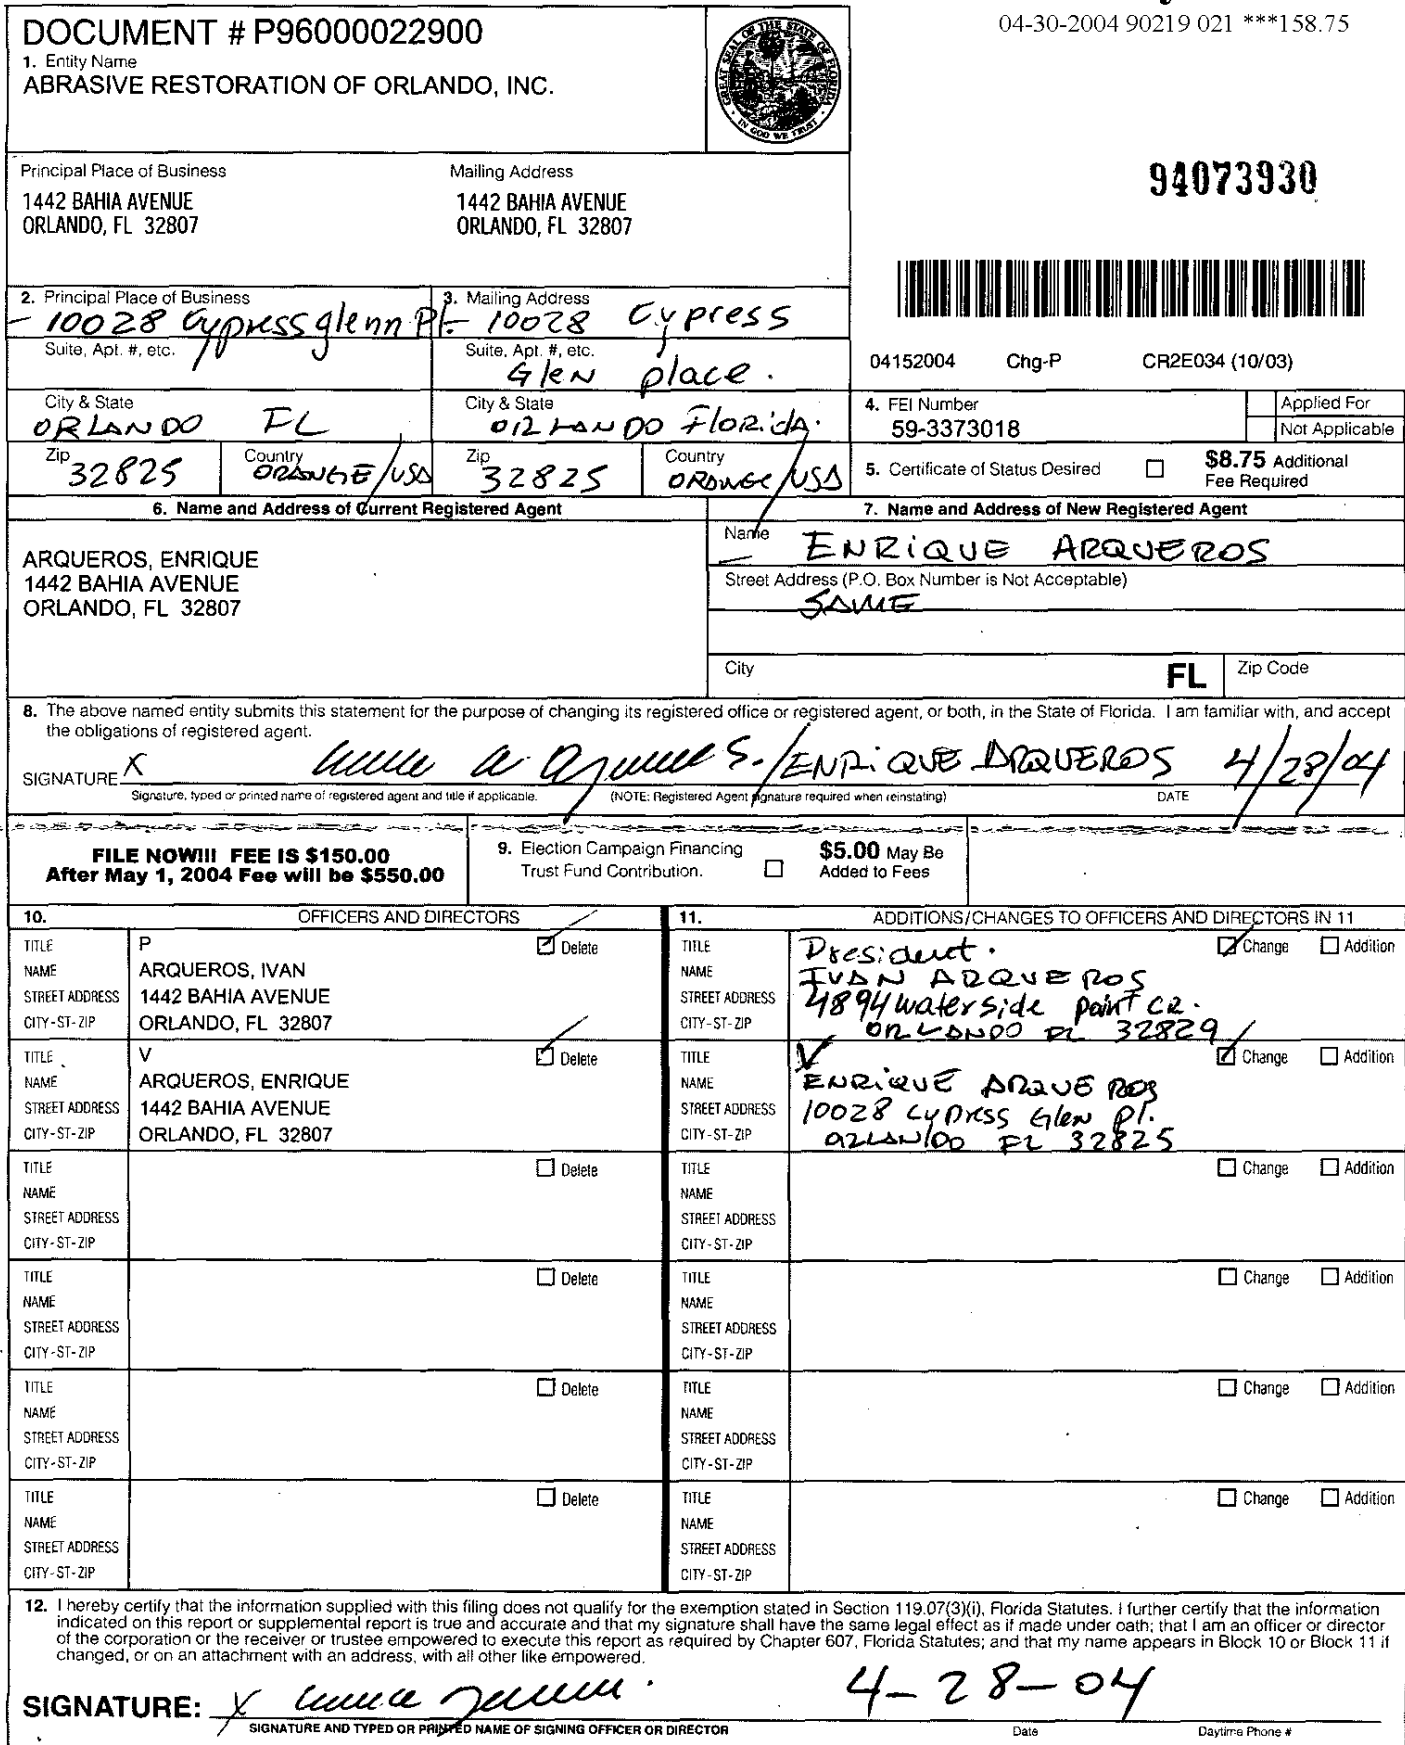 04-30-2004 90219 021 ***158.75
DOCUMENT # P96000022900
1. Entity Name
ABRASIVE RESTORATION OF ORLANDO, INC.
GREAT SEAL OF THE STATE OF FLORIDA
IN GOD WE TRUST
Principal Place of Business
1442 BAHIA AVENUE
ORLANDO, FL 32807
Mailing Address
1442 BAHIA AVENUE
ORLANDO, FL 32807
94073930
2. Principal Place of Business
10028 Cypress glenn Pl.
Suite, Apt. #, etc.
City & State
ORLANDO FL
Zip
32825
Country
ORANGE/USA
3. Mailing Address
10028 Cypress
Suite, Apt. #, etc.
Glen place.
City & State
ORLANDO Florida.
Zip
32825
Country
ORANGE/USA
04152004 Chg-P CR2E034 (10/03)
4. FEI Number
59-3373018
Applied For
Not Applicable
5. Certificate of Status Desired ☐ $8.75 Additional
Fee Required
6. Name and Address of Current Registered Agent
ARQUEROS, ENRIQUE
1442 BAHIA AVENUE
ORLANDO, FL 32807
7. Name and Address of New Registered Agent
Name
ENRIQUE ARQUEROS
Street Address (P.O. Box Number is Not Acceptable)
SAME
City
FL
Zip Code
8. The above named entity submits this statement for the purpose of changing its registered office or registered agent, or both, in the State of Florida. I am familiar with, and accept
the obligations of registered agent.
SIGNATURE X /ENRIQUE ARQUEROS 4/28/04
Signature, typed or printed name of registered agent and title if applicable. (NOTE: Registered Agent signature required when reinstating) DATE
FILE NOW!!! FEE IS $150.00
After May 1, 2004 Fee will be $550.00
9. Election Campaign Financing
Trust Fund Contribution. ☐
$5.00 May Be
Added to Fees
10. OFFICERS AND DIRECTORS
TITLE P ☑ Delete
NAME ARQUEROS, IVAN
STREET ADDRESS 1442 BAHIA AVENUE
CITY-ST-ZIP ORLANDO, FL 32807
TITLE V ☑ Delete
NAME ARQUEROS, ENRIQUE
STREET ADDRESS 1442 BAHIA AVENUE
CITY-ST-ZIP ORLANDO, FL 32807
TITLE ☐ Delete
NAME
STREET ADDRESS
CITY-ST-ZIP
TITLE ☐ Delete
NAME
STREET ADDRESS
CITY-ST-ZIP
TITLE ☐ Delete
NAME
STREET ADDRESS
CITY-ST-ZIP
TITLE ☐ Delete
NAME
STREET ADDRESS
CITY-ST-ZIP
11. ADDITIONS/CHANGES TO OFFICERS AND DIRECTORS IN 11
TITLE President. ☑ Change ☐ Addition
NAME IVAN ARQUEROS
STREET ADDRESS 4894 waterside paint CR.
CITY-ST-ZIP ORLANDO FL 32829
TITLE V ☑ Change ☐ Addition
NAME ENRIQUE ARQUEROS
STREET ADDRESS 10028 Cypress Glen Pl.
CITY-ST-ZIP ORLANDO FL 32825
TITLE ☐ Change ☐ Addition
NAME
STREET ADDRESS
CITY-ST-ZIP
TITLE ☐ Change ☐ Addition
NAME
STREET ADDRESS
CITY-ST-ZIP
TITLE ☐ Change ☐ Addition
NAME
STREET ADDRESS
CITY-ST-ZIP
TITLE ☐ Change ☐ Addition
NAME
STREET ADDRESS
CITY-ST-ZIP
12. I hereby certify that the information supplied with this filing does not qualify for the exemption stated in Section 119.07(3)(i), Florida Statutes. I further certify that the information
indicated on this report or supplemental report is true and accurate and that my signature shall have the same legal effect as if made under oath; that I am an officer or director
of the corporation or the receiver or trustee empowered to execute this report as required by Chapter 607, Florida Statutes; and that my name appears in Block 10 or Block 11 if
changed, or on an attachment with an address, with all other like empowered.
SIGNATURE: X 4-28-04
SIGNATURE AND TYPED OR PRINTED NAME OF SIGNING OFFICER OR DIRECTOR Date Daytime Phone #